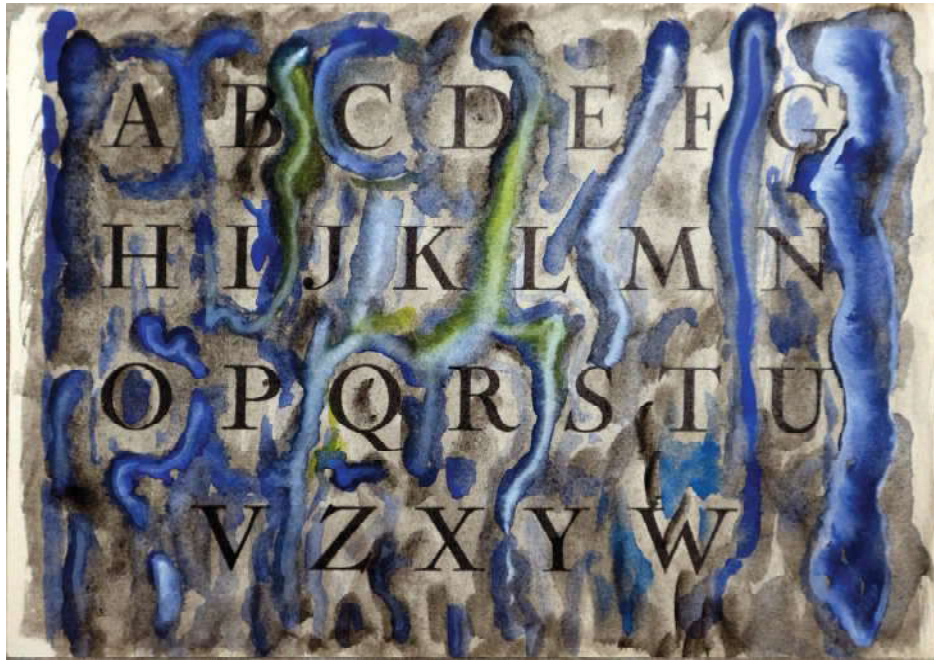 A B C D E F G
H I J K L M N
O P Q R S T U
V Z X Y W